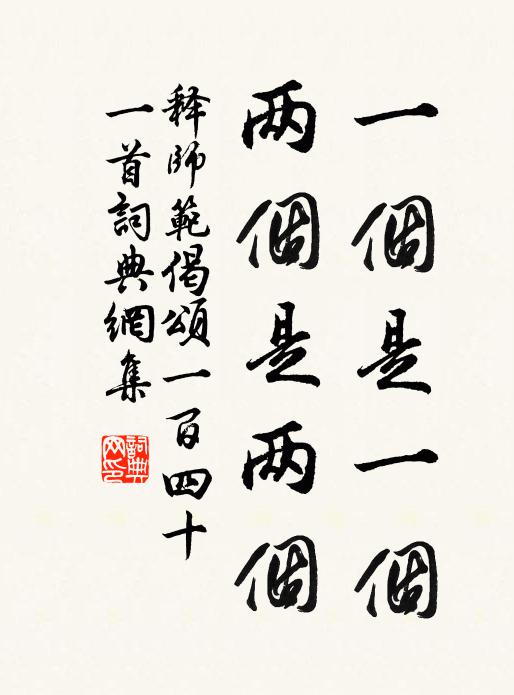 一個是一個
两個是两個
释師範偈頌一百四十
一首詞典網集
詞典网印